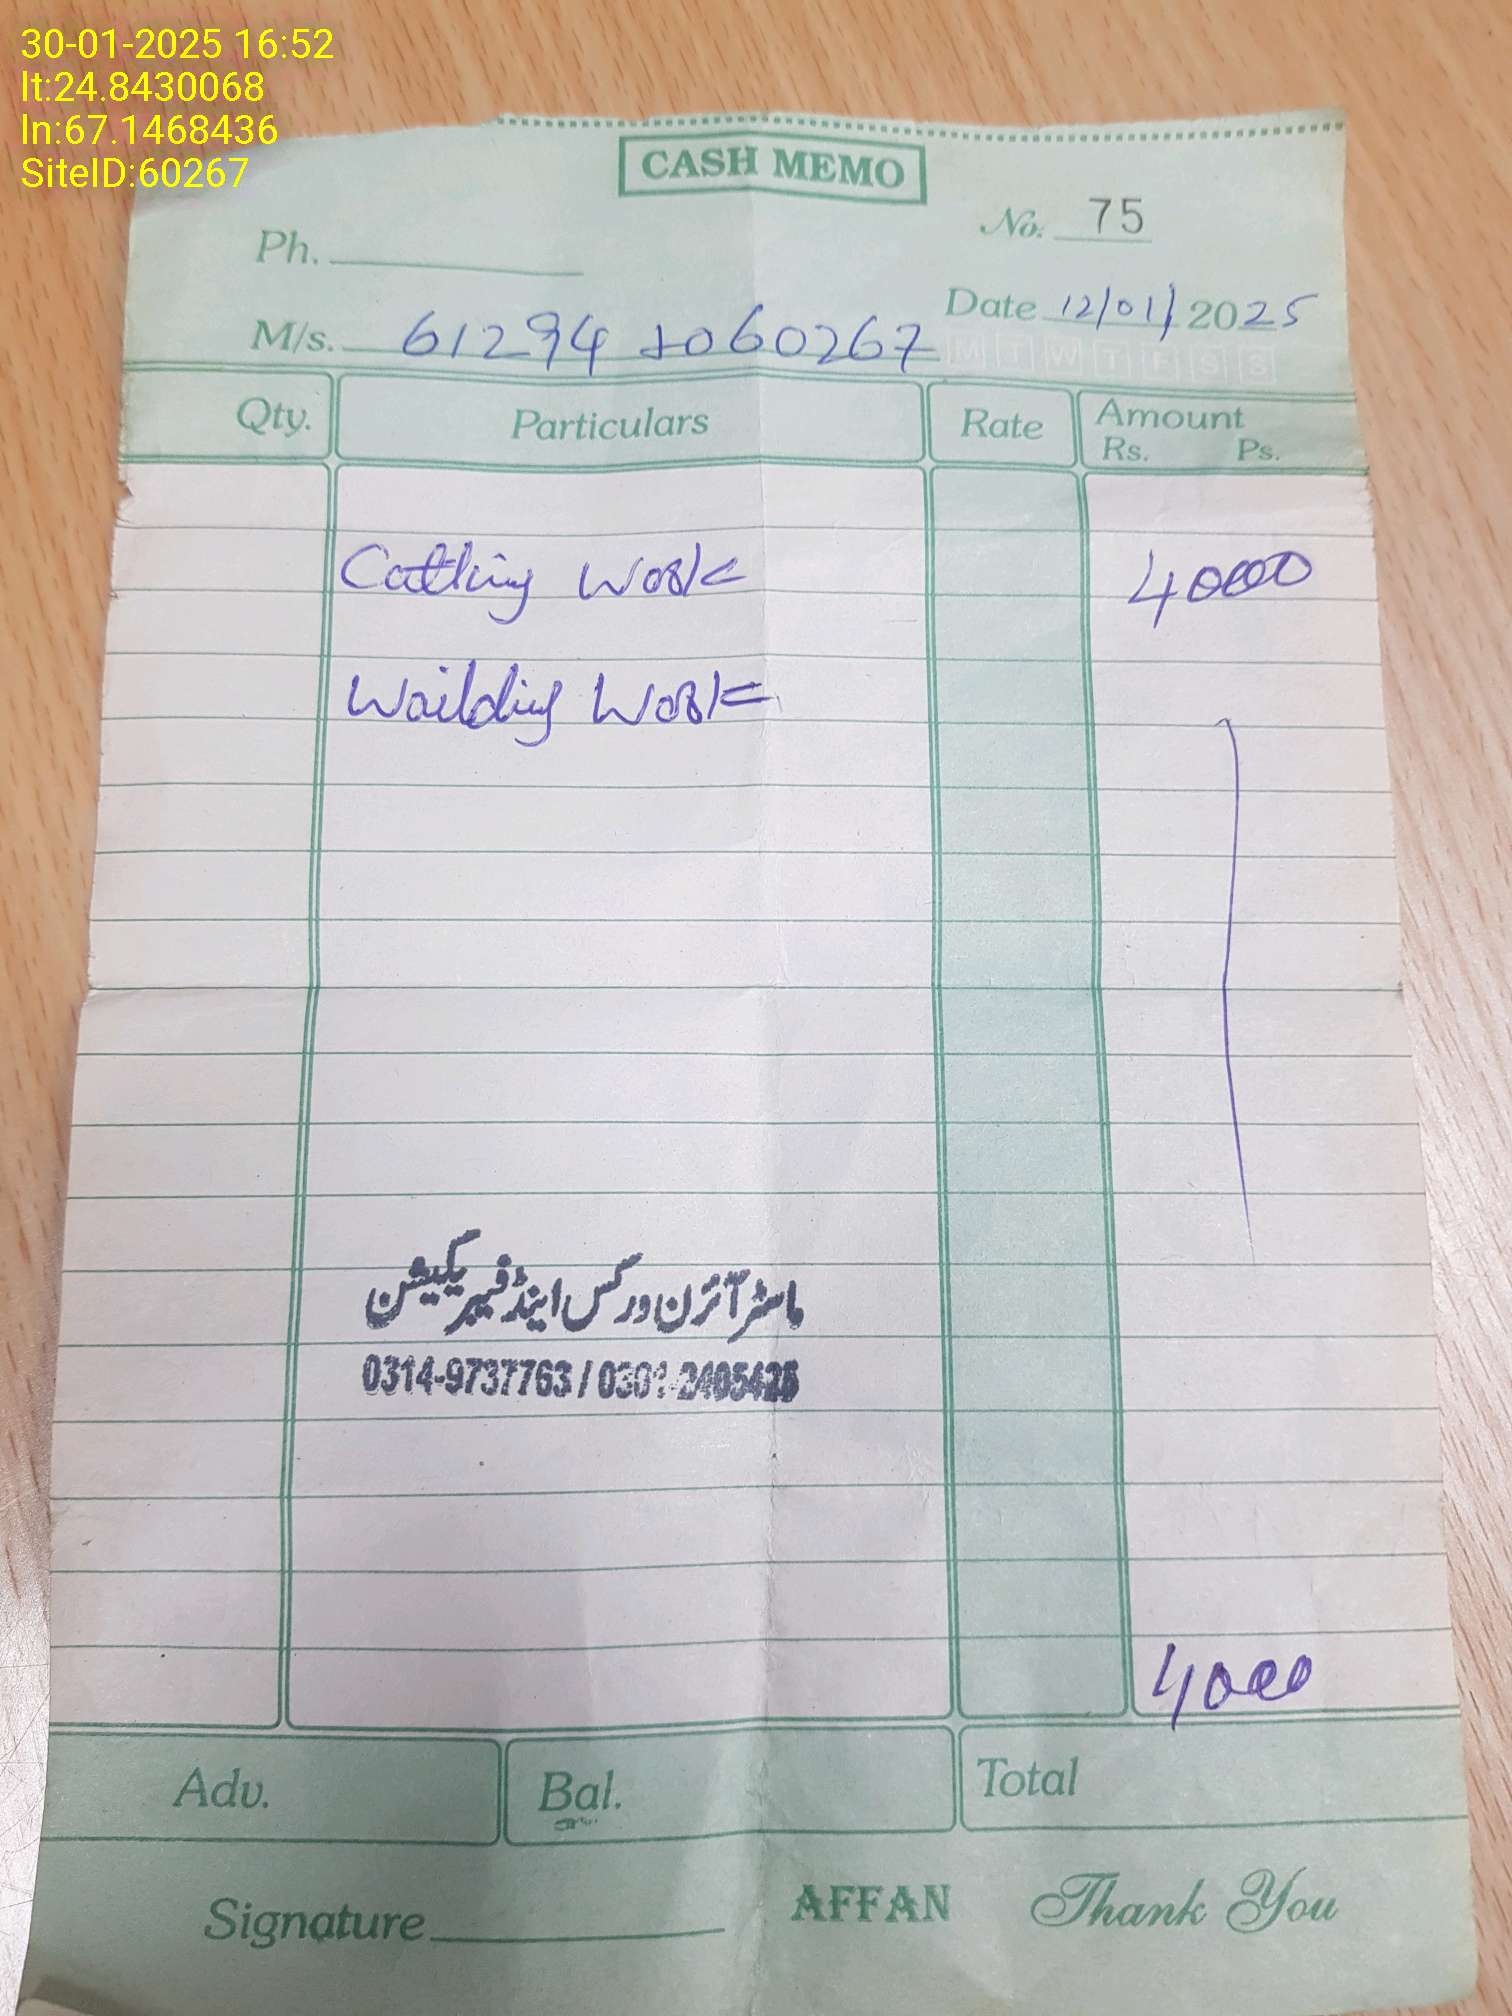 30-01-2025 16:52
lt:24.8430068
ln:67.1468436
SiteID:60267
CASH MEMO
No. 75
Ph.
Date 12/01/2025
M/s. 61294 to 60267
M T W T F S S
Qty. Particulars Rate Amount
Rs. Ps.
Catting Work 40000
Wailding Work
ماسٹر آئرن ورکس اینڈ فیبریکیشن
0314-9737763 /
4000
Adv. Bal. Total
Signature AFFAN Thank You